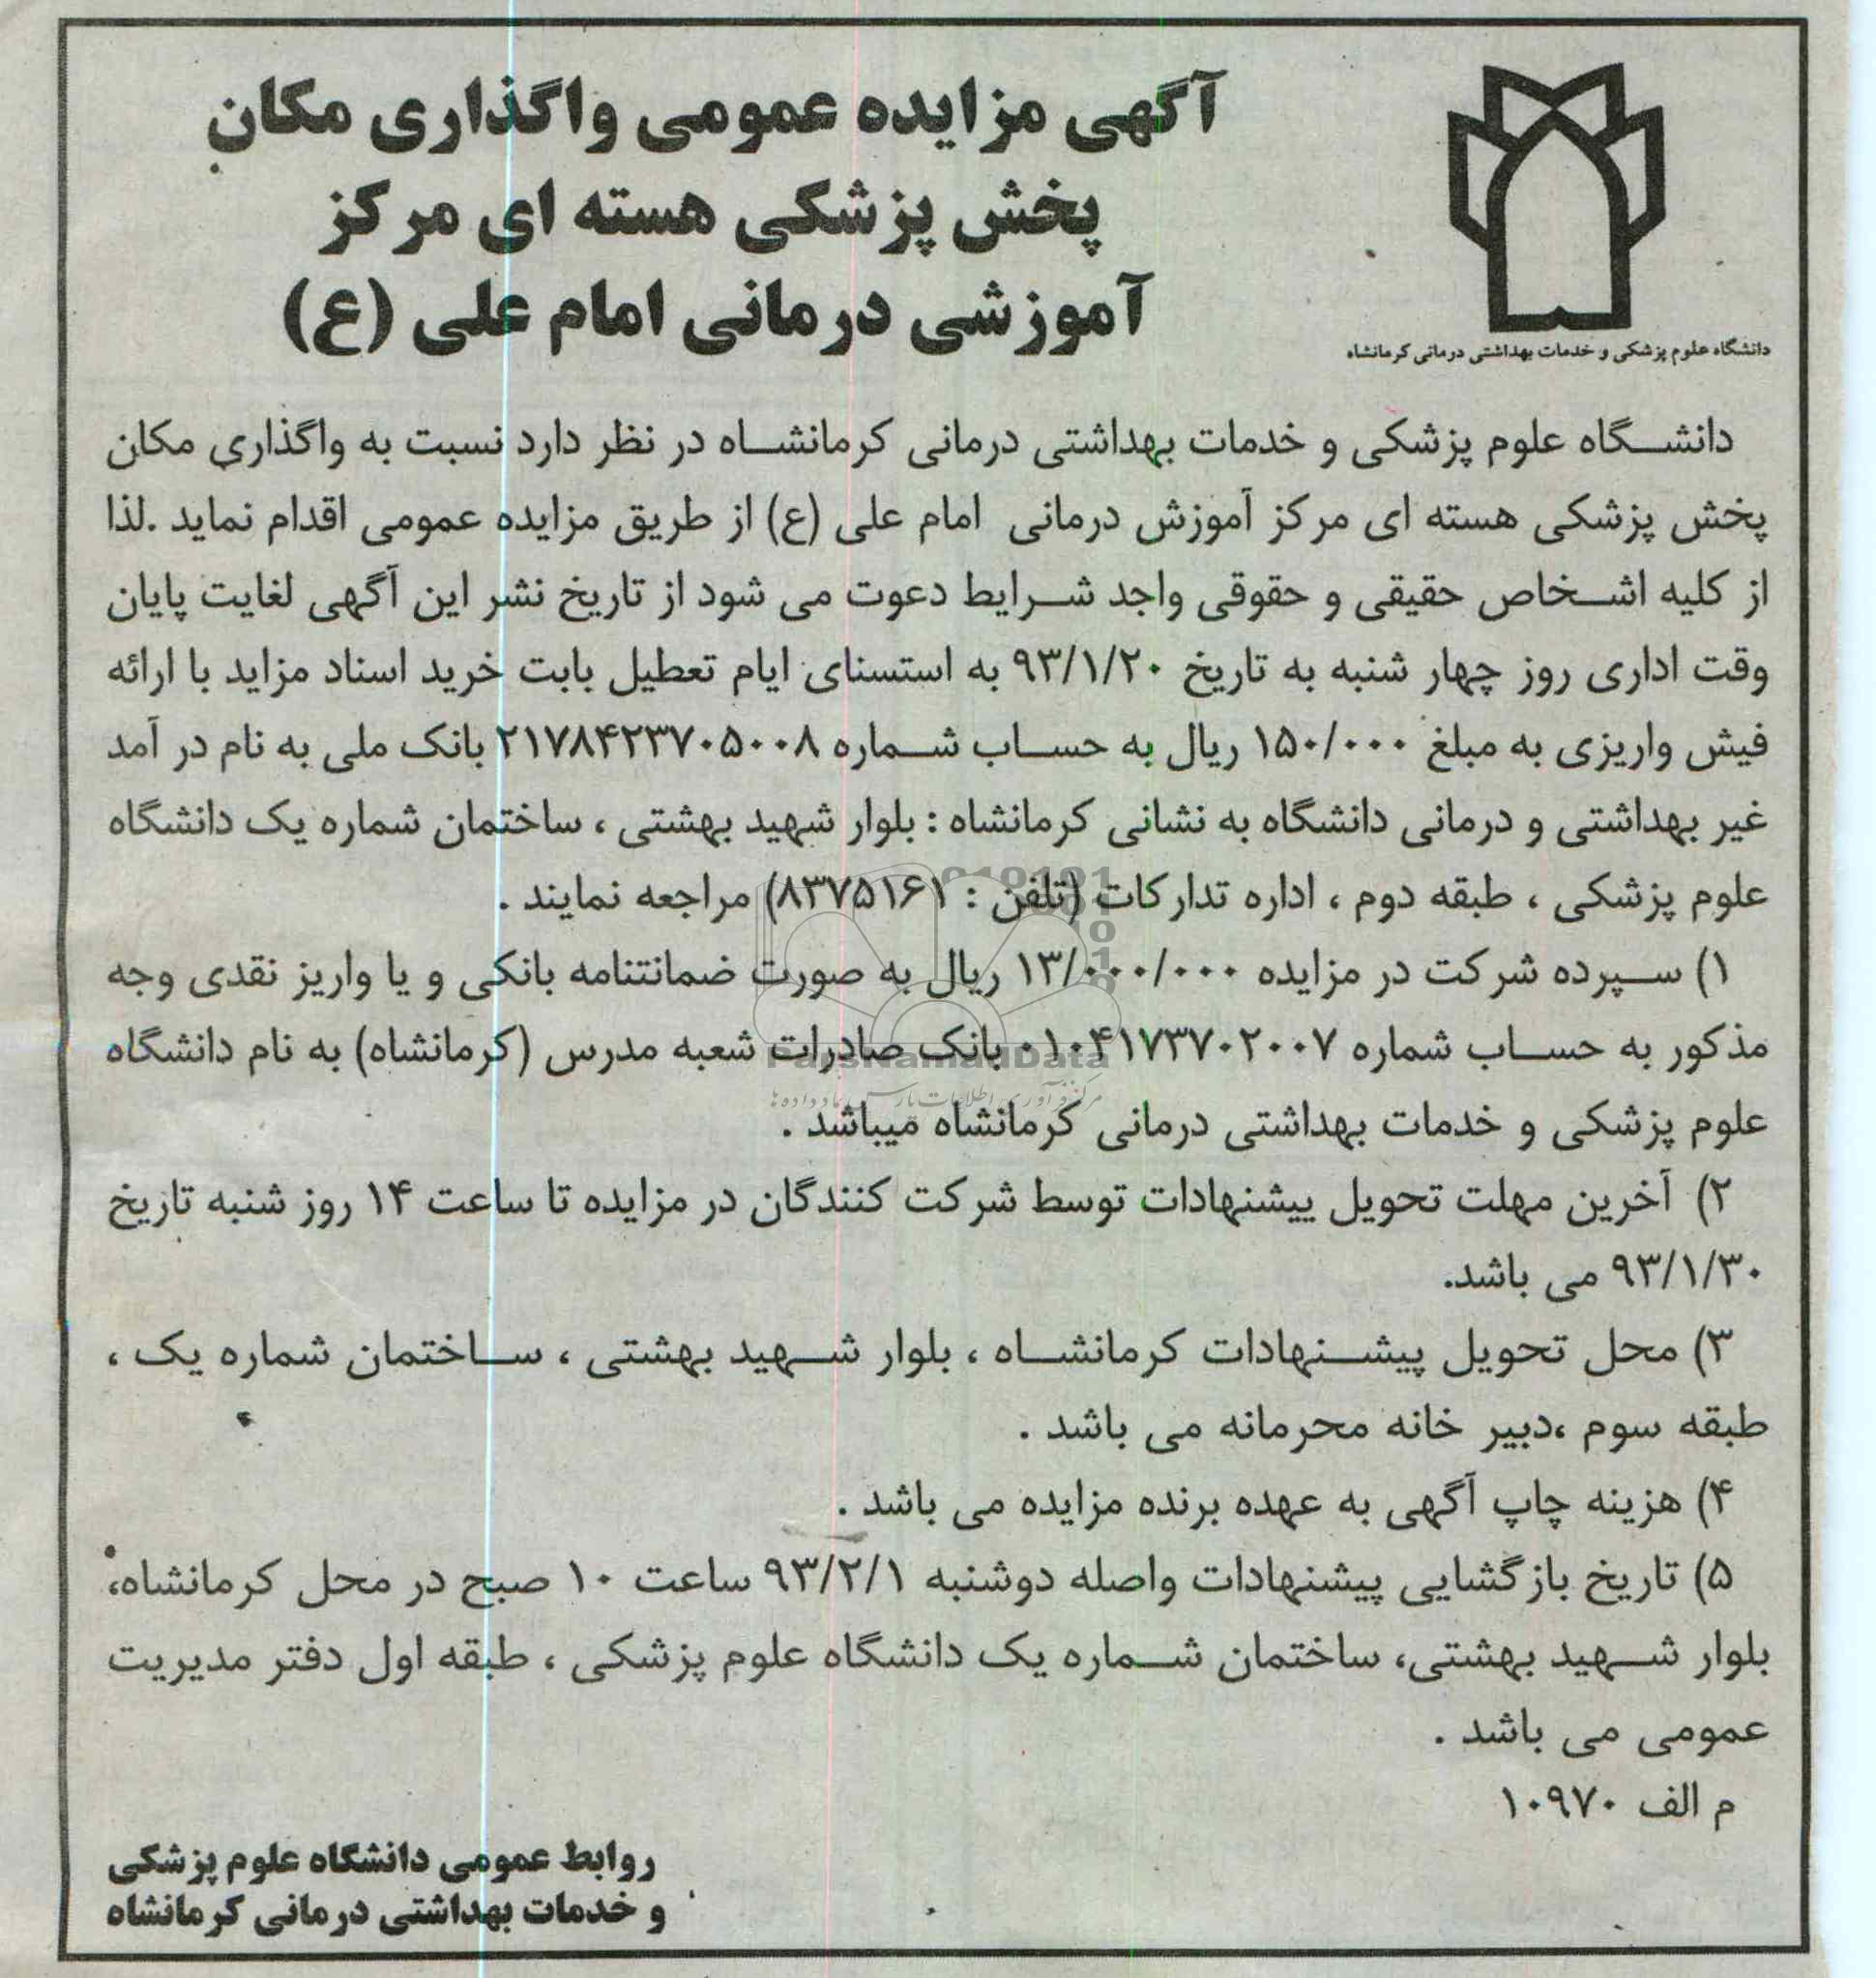 آگهی مزایده عمومی واگذاری مکان
پخش پزشکی هسته ای مرکز
آموزشی درمانی امام علی (ع)
دانشگاه علوم پزشکی و خدمات بهداشتی درمانی کرمانشاه
دانشـــگاه علوم پزشکی و خدمات بهداشتی درمانی کرمانشـــاه در نظر دارد نسبت به واگذاری مکان
پخش پزشکی هسته ای مرکز آموزش درمانی امام علی (ع) از طریق مزایده عمومی اقدام نماید .لذا
از کلیه اشـــخاص حقیقی و حقوقی واجد شـــرایط دعوت می شود از تاریخ نشر این آگهی لغایت پایان
وقت اداری روز چهار شنبه به تاریخ ۹۳/۱/۲۰ به استسنای ایام تعطیل بابت خرید اسناد مزاید با ارائه
فیش واریزی به مبلغ ۱۵۰/۰۰۰ ریال به حســـاب شـــماره ۲۱۷۸۴۲۳۷۰۵۰۰۸ بانک ملی به نام در آمد
غیر بهداشتی و درمانی دانشگاه به نشانی کرمانشاه : بلوار شهید بهشتی ، ساختمان شماره یک دانشگاه
علوم پزشکی ، طبقه دوم ، اداره تدارکات (تلفن : ۸۳۷۵۱۶۱) مراجعه نمایند .
۱) ســـپرده شرکت در مزایده ۱۳/۰۰۰/۰۰۰ ریال به صورت ضمانتنامه بانکی و یا واریز نقدی وجه
مذکور به حســـاب شماره ۰۱۰۴۱۷۳۷۰۲۰۰۷ بانک صادرات شعبه مدرس (کرمانشاه) به نام دانشگاه
علوم پزشکی و خدمات بهداشتی درمانی کرمانشاه میباشد .
ParsNamadData
۲) آخرین مهلت تحویل پیشنهادات توسط شرکت کنندگان در مزایده تا ساعت ۱۴ روز شنبه تاریخ
۹۳/۱/۳۰ می باشد.
۳) محل تحویل پیشـــنهادات کرمانشـــاه ، بلوار شـــهید بهشتی ، ســـاختمان شماره یک ،
طبقه سوم ،دبیر خانه محرمانه می باشد .
۴) هزینه چاپ آگهی به عهده برنده مزایده می باشد .
۵) تاریخ بازگشایی پیشنهادات واصله دوشنبه ۹۳/۲/۱ ساعت ۱۰ صبح در محل کرمانشاه،
بلوار شـــهید بهشتی، ساختمان شـــماره یک دانشگاه علوم پزشکی ، طبقه اول دفتر مدیریت
عمومی می باشد .
م الف ۱۰۹۷۰
روابط عمومی دانشگاه علوم پزشکی
و خدمات بهداشتی درمانی کرمانشاه